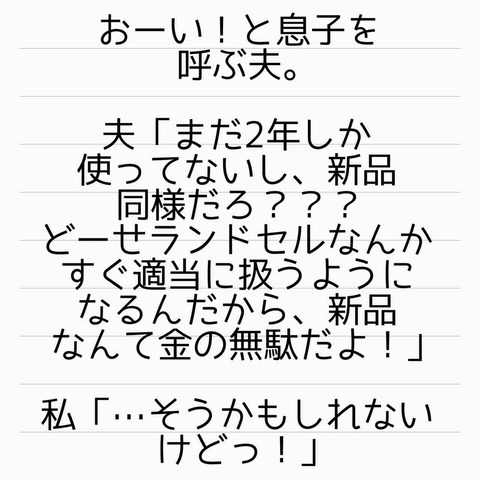 おーい！と息子を
呼ぶ夫。
夫「まだ2年しか
使ってないし、新品
同様だろ？？？
どーせランドセルなんか
すぐ適当に扱うように
なるんだから、新品
なんて金の無駄だよ！」
私「…そうかもしれない
けどっ！」